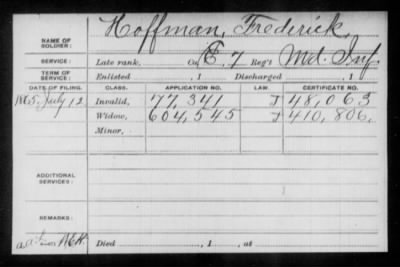 NAME OF SOLDIER: Hoffman, Frederick,
SERVICE: Late rank, Co. E, 7 Reg't Md. Inf.
TERM OF SERVICE: Enlisted , 1 Discharged , 1
DATE OF FILING. CLASS. APPLICATION NO. LAW. CERTIFICATE NO.
1865, July 12 Invalid, 77,341 J 48,063
Widow, 604,545 J 410,806,
Minor,
ADDITIONAL SERVICES:
REMARKS:
Died , 1 , at